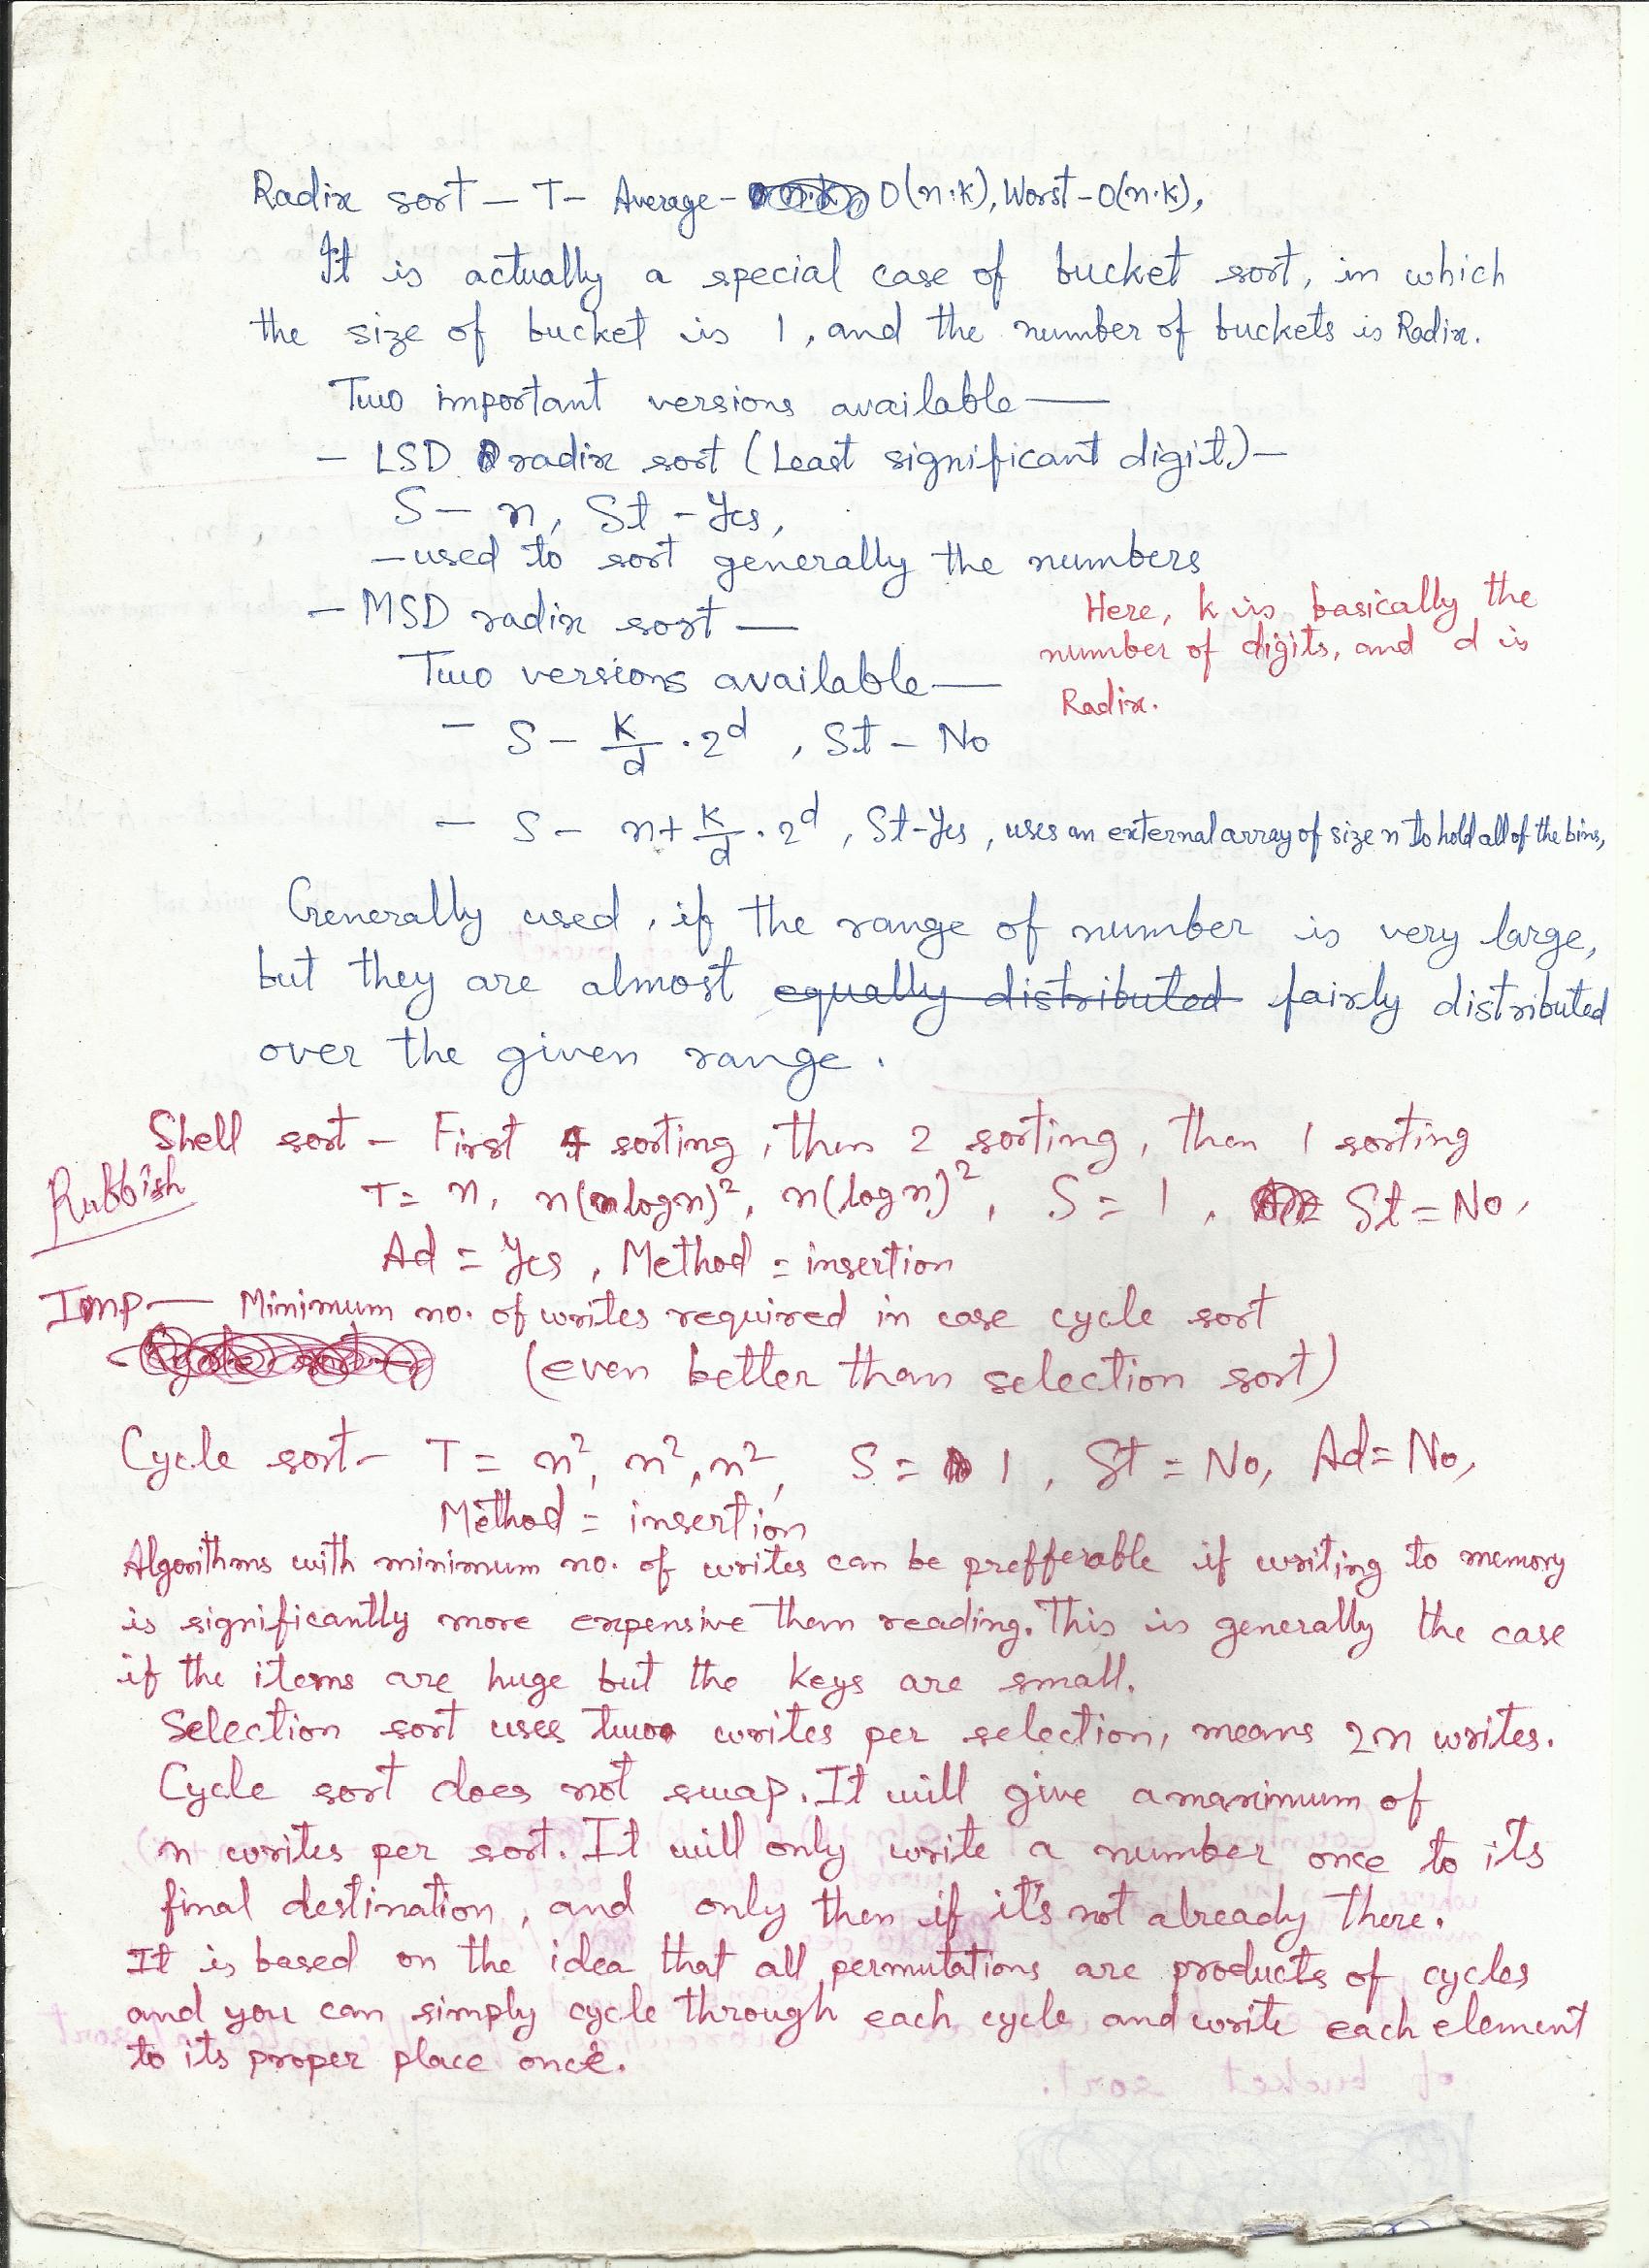 Radix sort – T – Average – O(n·k), Worst – O(n·k),
It is actually a special case of bucket sort, in which
the size of bucket is 1, and the number of buckets is Radix.
Two important versions available —
– LSD radix sort (Least significant digit) –
S – n, St – Yes,
– used to sort generally the numbers
– MSD radix sort —
Here, k is basically the
number of digits, and d is
Radix.
Two versions available —
– S – k/d · 2^d , St – No
– S – n + k/d · 2^d , St – Yes , uses an external array of size n to hold all of the bins,
Generally used, if the range of number is very large,
but they are almost equally distributed fairly distributed
over the given range.
Shell sort – First 4 sorting, then 2 sorting, then 1 sorting
Rubbish
T = n, n(logn)², n(logn)², S = 1, St = No,
Ad = Yes, Method = insertion
Imp — Minimum no. of writes required in case cycle sort
(even better than selection sort)
Cycle sort – T = n², n², n², S = 1, St = No, Ad = No,
Method = insertion
Algorithms with minimum no. of writes can be prefferable if writing to memory
is significantly more expensive then reading. This is generally the case
if the items are huge but the keys are small.
Selection sort uses two writes per selection, means 2n writes.
Cycle sort does not swap. It will give a maximum of
n writes per sort. It will only write a number once to its
final destination, and only then if it's not already there.
It is based on the idea that all permutations are products of cycles
and you can simply cycle through each cycle and write each element
to its proper place once.